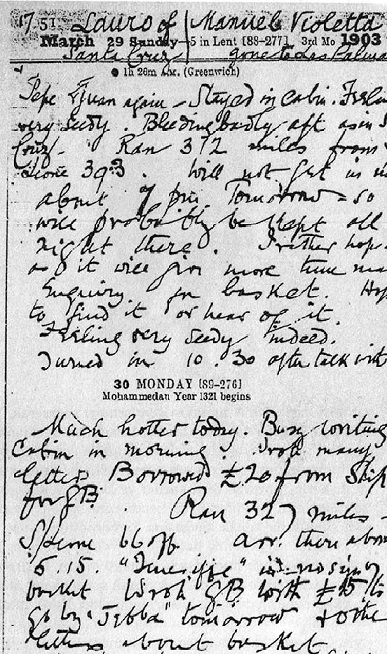 17.51. Lauro of / Manuel Violetta
March 29 Sunday—5 in Lent [88-277] 3rd Mo 1903
Santa Cruz / gone to Las Palmas
1h 26m A.M. (Greenwich)
Pepe & Juan again — Stayed in Cabin. Feeling
very seedy. Bleeding badly aft as in S
Cruz. Ran 372 miles from
393. Will not get in
about 7 pm. Tomorrow — so
will probably be kept all
night there. I rather hope
as it will give more time
Enquiry for basket. Hope
to find it or hear of it.
Feeling very seedy indeed.
Turned in 10.30 after talk with
30 MONDAY [89-276]
Mohammedan Year 1321 begins
Much hotter today. Busy writing
Cabin in morning. Wrote many
letters. Borrowed £20 from Ship
for GB. Ran 327 miles —
66 off. arr. there about
5.15. "Teneriffe" no sign
basket Wrote GB with £15 to
go by "Jebba" tomorrow & other
letters about basket.